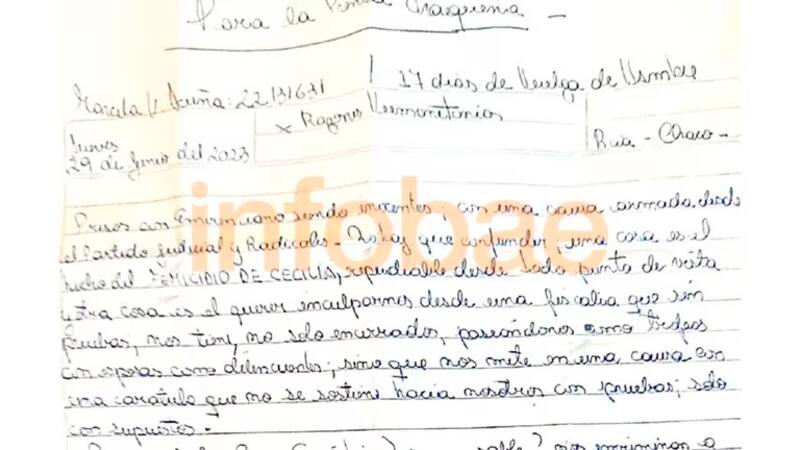 Para la Prensa Chaqueña -
Marcela V Acuña: 22131631 / 17 días de Huelga de Hambre
x Razones Humanitarias
Jueves
29 de Junio del 2023
Rcia - Chaco -
infobae
Presos con Emerenciano siendo inocentes; con una causa armada desde
el Partido Judicial y Radicales - No hay que confundir, una cosa es el
hecho del FEMICIDIO DE CECILIA, repudiable desde todo punto de vista
y otra cosa es el querer inculparnos desde una fiscalia que sin
pruebas, nos tiene, no solo encerrados, paseándonos como
con esposas como delincuentes; sino que nos mete en una causa con
una caratula que no se sostiene hacia nosotros con pruebas; solo
con supuestos -